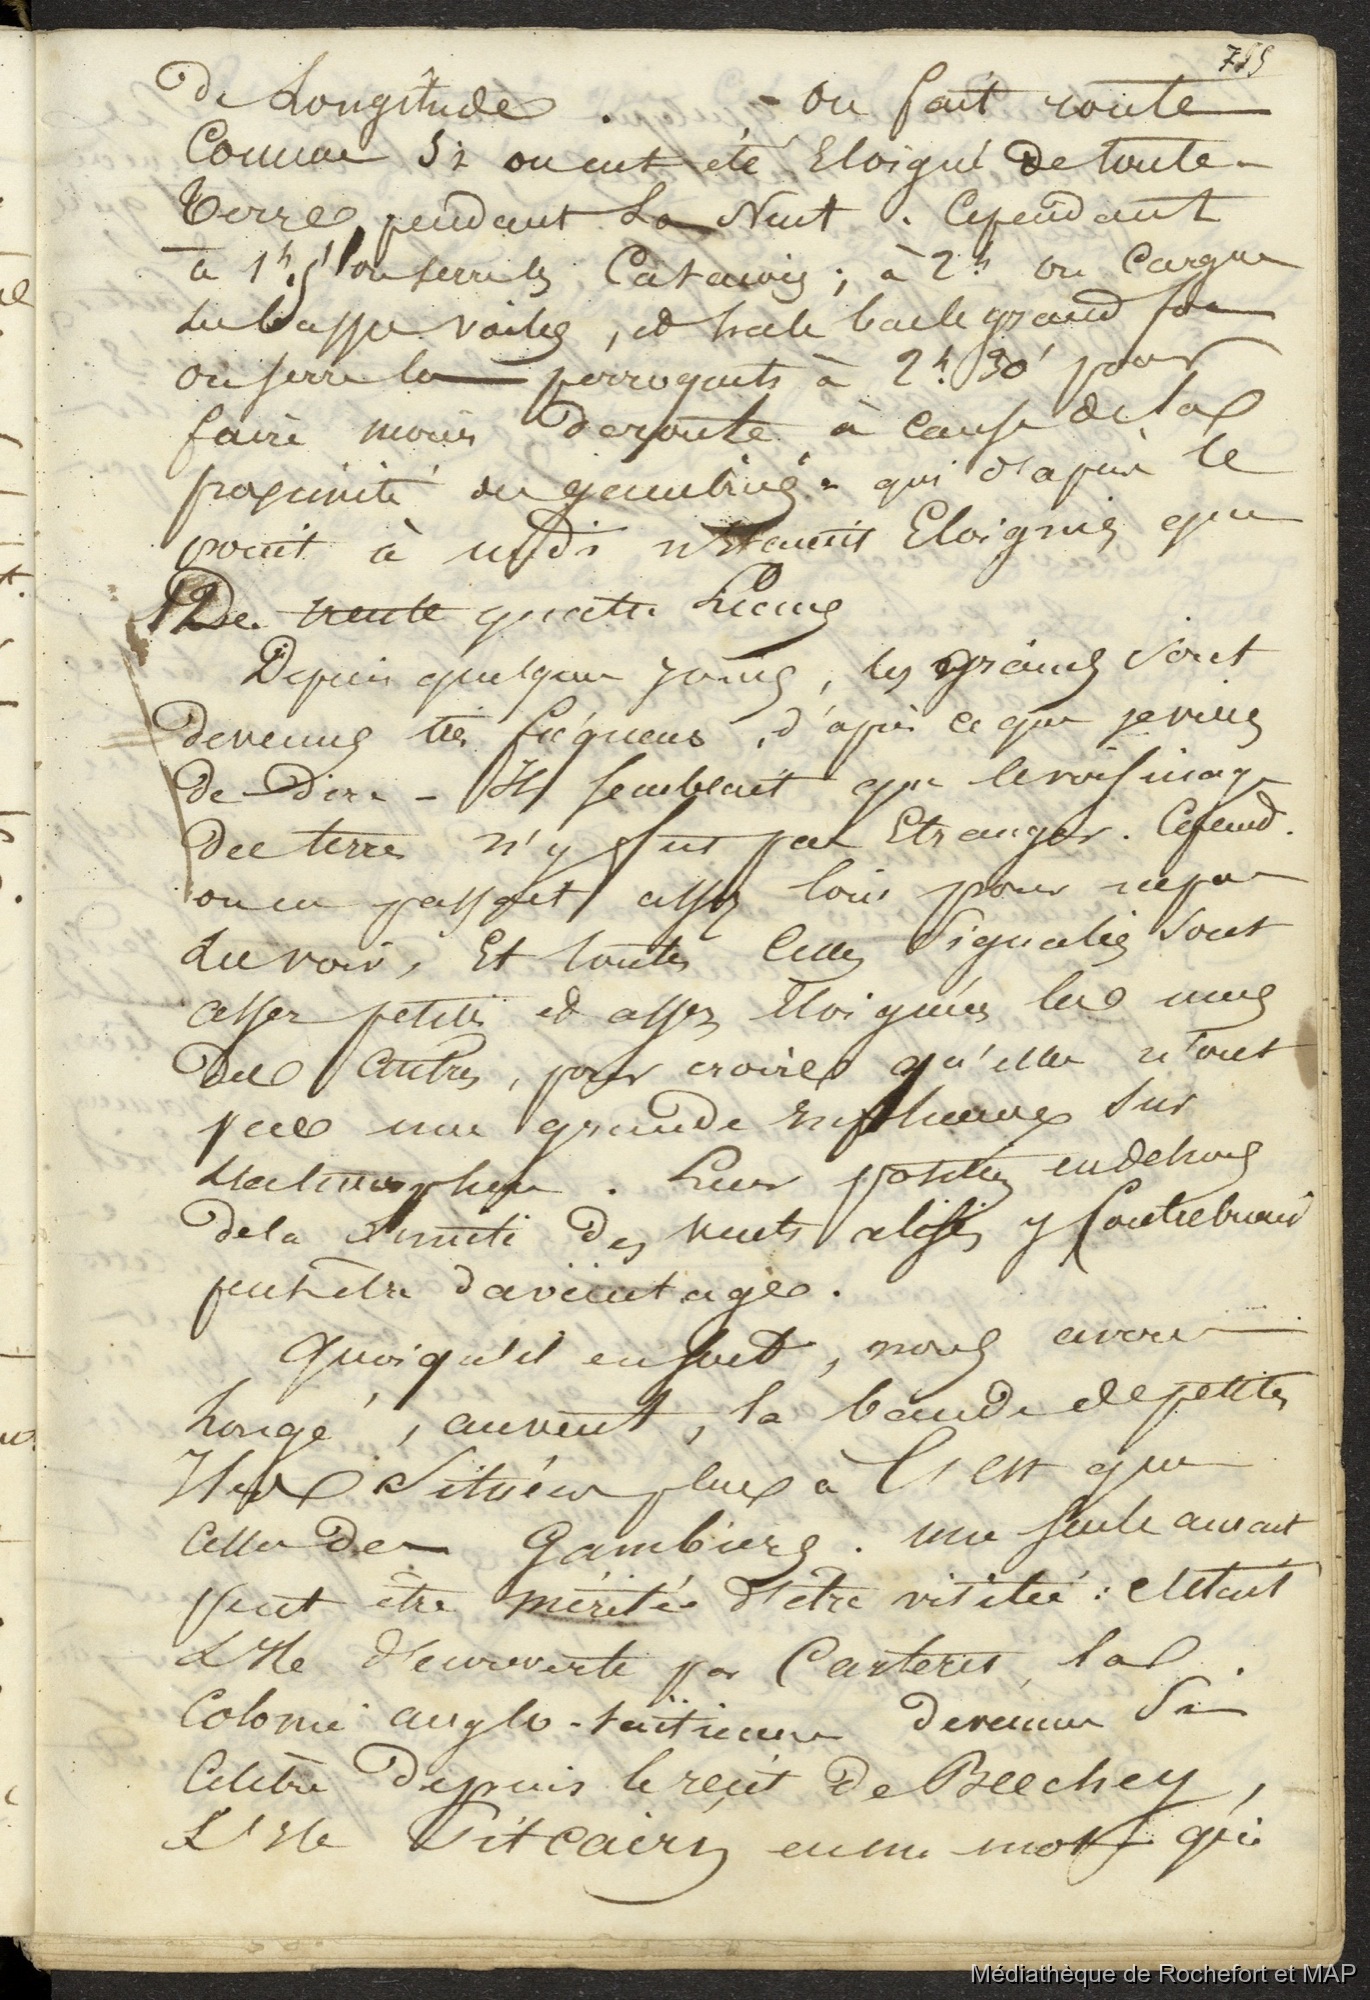 755
De Longitude. - on fait route
Comme Si on eut été Eloigné de toute
Terre pendant La Nuit. Cependant
à 1h. 5' on serre les Catacois; à 2h on Cargue
Les basses voiles, et hale bas le grand foc
on serre les perroquets à 2h. 30' pour
faire moins de route à cause de la
proximité des gambiers - qui d'après le
point à midi n'étaient Eloignés que
De trente quatre Lieues
Depuis quelques jours, les grains sont
devenus très fréquens, d'après ce que je viens
de Dire - Il semblerait que le voisinage
des terres n'y fut pas Etranger. Cepend.
on en passait assez loin pour ne pas
Les voir, Et toutes Celles Signalées sont
assez petites et assez Eloignées les unes
des autres, pour croire qu'elles n'ont
pas une grande influence Sur
L'atmosphère. Leur position en dehors
de la limite des vents alisés y Contribuait
peut être davantage.
Quoiqu'il en soit, nous avons
Longé, au vent, la bande de petites
Iles Situées plus à l'Est que
Celles des Gambiers. une seule aurait
peut être méritée d'être visitée: c'était
L'Ile découverte par Carteret, la
Colonie anglo-taïtienne devenue Si
Célèbre Depuis le récit de Beechey,
L'Ile Pitcairn, en un mot, qui
Médiathèque de Rochefort et MAP